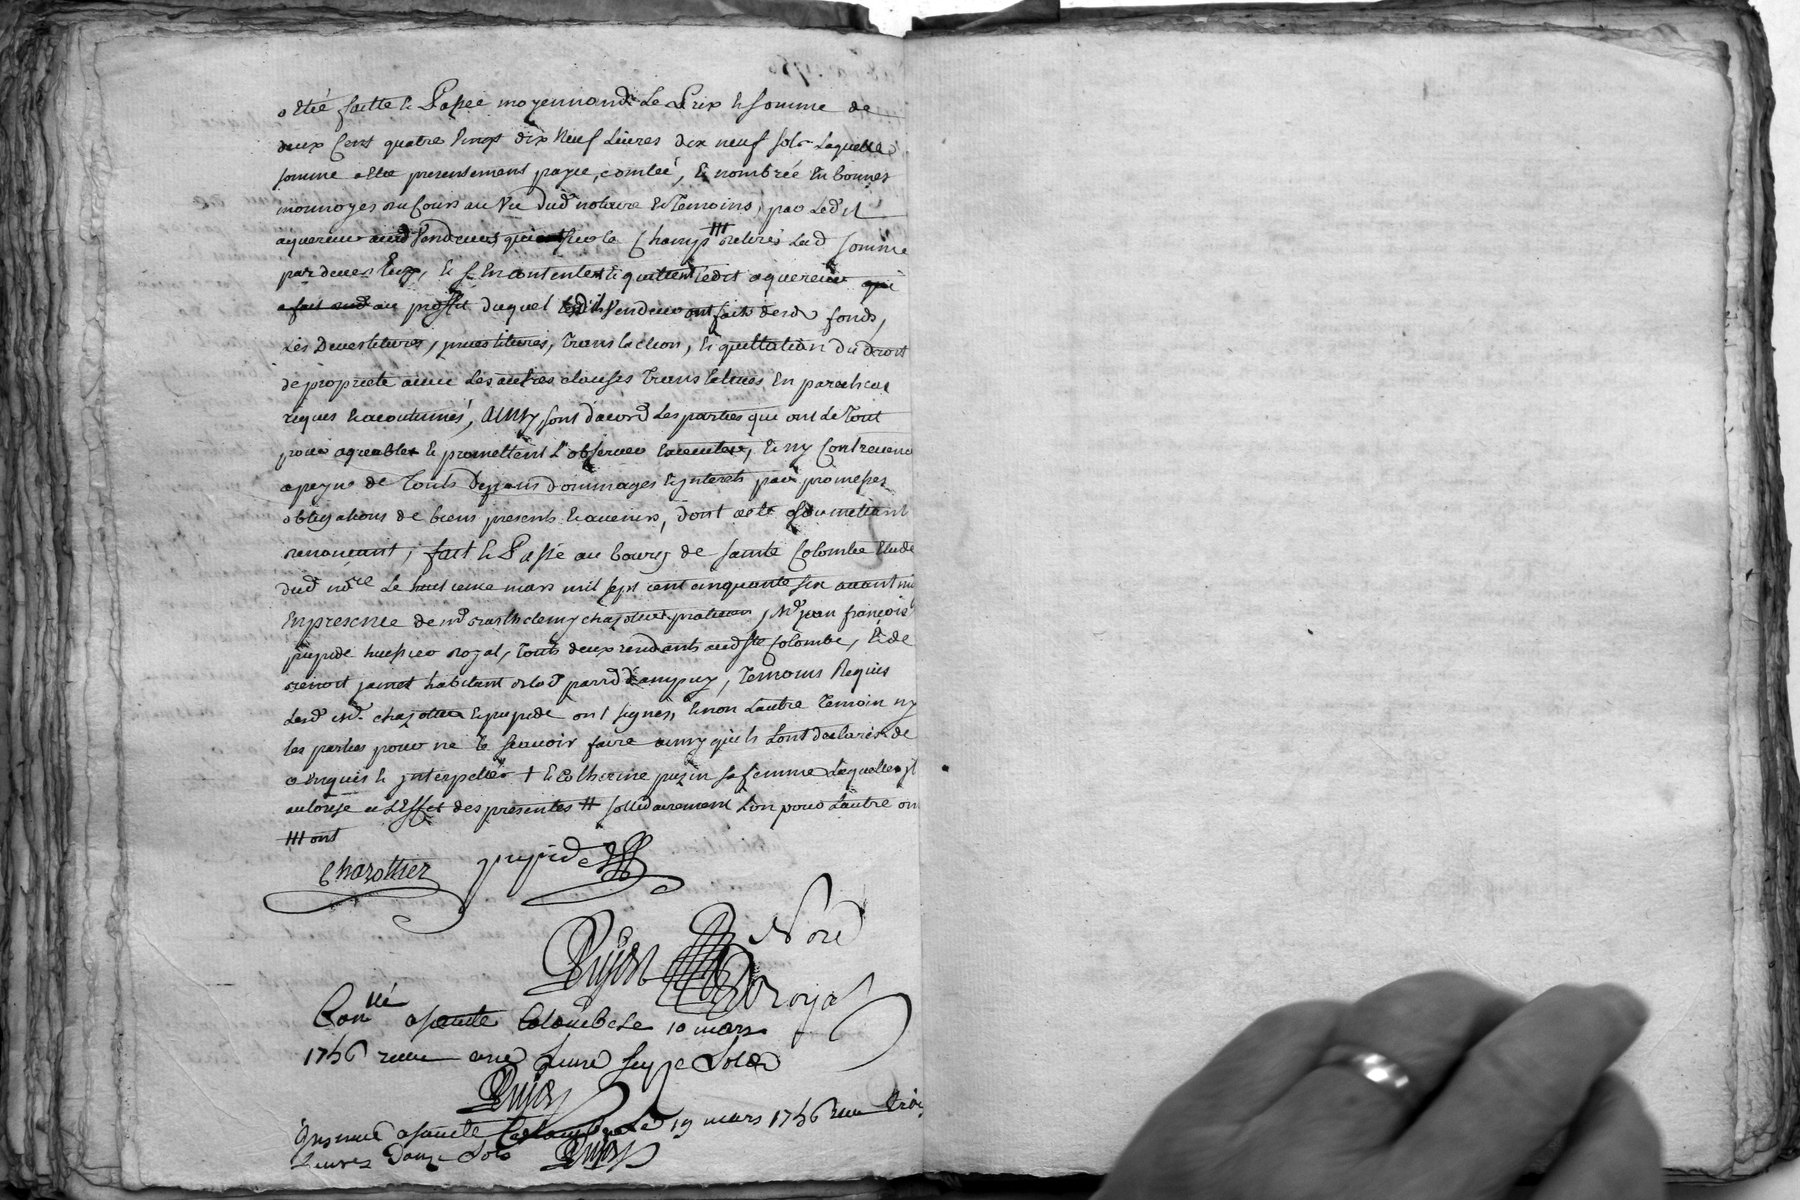 a Eté faitte & Passée moyennand Le Prix & somme de
deux Cent quatre Vingt dix Neuf Livres dix neuf sols Laquelle
somme a Eté presentement payée, comtéé, & nombréé En bonnes
monnoyes au Cours au Vu dud notaire & Temoins, par Ledit
aquereur aud Vendeurs qui sur le Champ III retirés Lad somme
par devers Eux, & s'En contentent & quittent ledit aquereur qui
a fait aud au proffit duquel lesdits Vendeurs ont faits desd fonds,
Les Devestitures, investitures, Translaction, & quittation du droit
de proprieté avec Les autres clauses Translatives En pareil cas
requis & acoutumés, Ainsy sont d'acord Les parties qui ont Le Tout
pour agreable & promettent L'observer & , & ny Contrevenir
a peyne de Touts Depans Dommages & interets par promesses
obligations de biens presents & avenirs, dont acte soumettant
renoncant, fait & Passé au bourg de Sainte Colombe Etude
dud no.re Le huitieme mars mil sept cent cinquante six avant midy
En presence de m.r Barthelemy chazottier praticien, & M.r jean françois
pupide huissier Royal, Touts deux residants aud S.te Colombe, & de
Benoit jamet habitant de lad parr.e d'ampuy, Temoins Requis
Lesd M.r chazottier & pupide ont signés, & non Lautre Temoin ny
les parties pour ne le scavoir faire ainsy qu'ils L'ont declarés de
ce Enquis & interpellés + & Catherine puzin sa femme Laquelle il
autorise a L'Effet des presentes # sollidairement L'un pour L'autre on
III ont
Chazottier pupide
Dujast No.re
Royal
Con.llé a Sainte Colombe Le 10 mars
1756 receu une Livre seize Sols
Dujast
Insinué a Sainte Colombe Le 19 mars 1756 receu trois
Livres Douze Sols Dujast